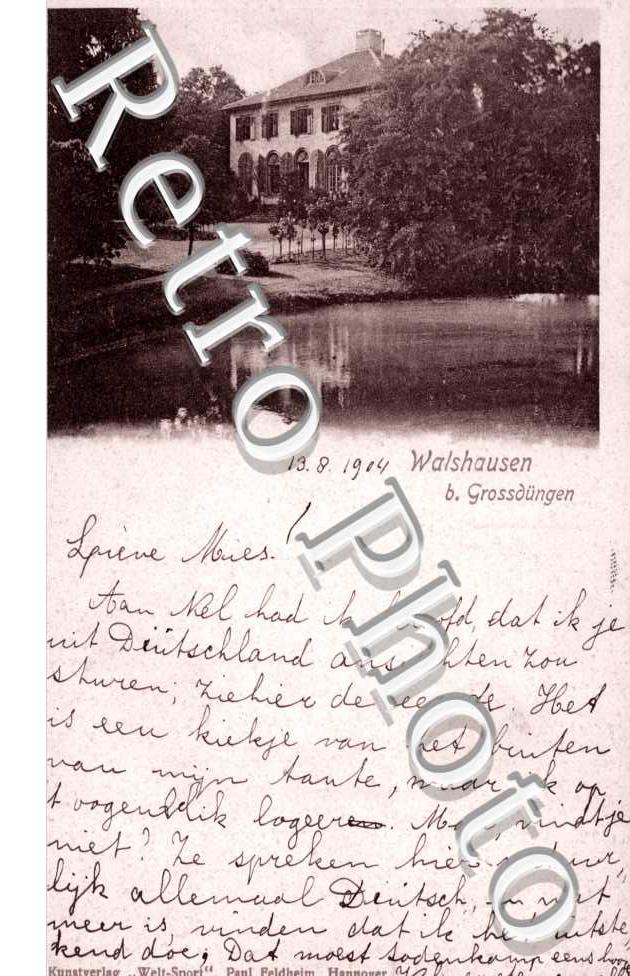 Retro Photo
13.8.1904 Walshausen
b. Grossdüngen
Lieve Mies!
Aan Nel had ik beloofd, dat ik je
uit Deutschland ansichten zou
sturen; ziehier de tweede. Het
is een kiekje van het buiten
van mijn tante, waar ik op
't oogenblik logeer. Mooi, vindt je
niet? Ze spreken hier natuur,
lijk allemaal Deutsch, en wat
meer is, vinden dat ik het uitste,
kend doe. Dat moest Sodenkamp eens hooren
Kunstverlag „Welt-Sport“ Paul Feldheim, Hannover